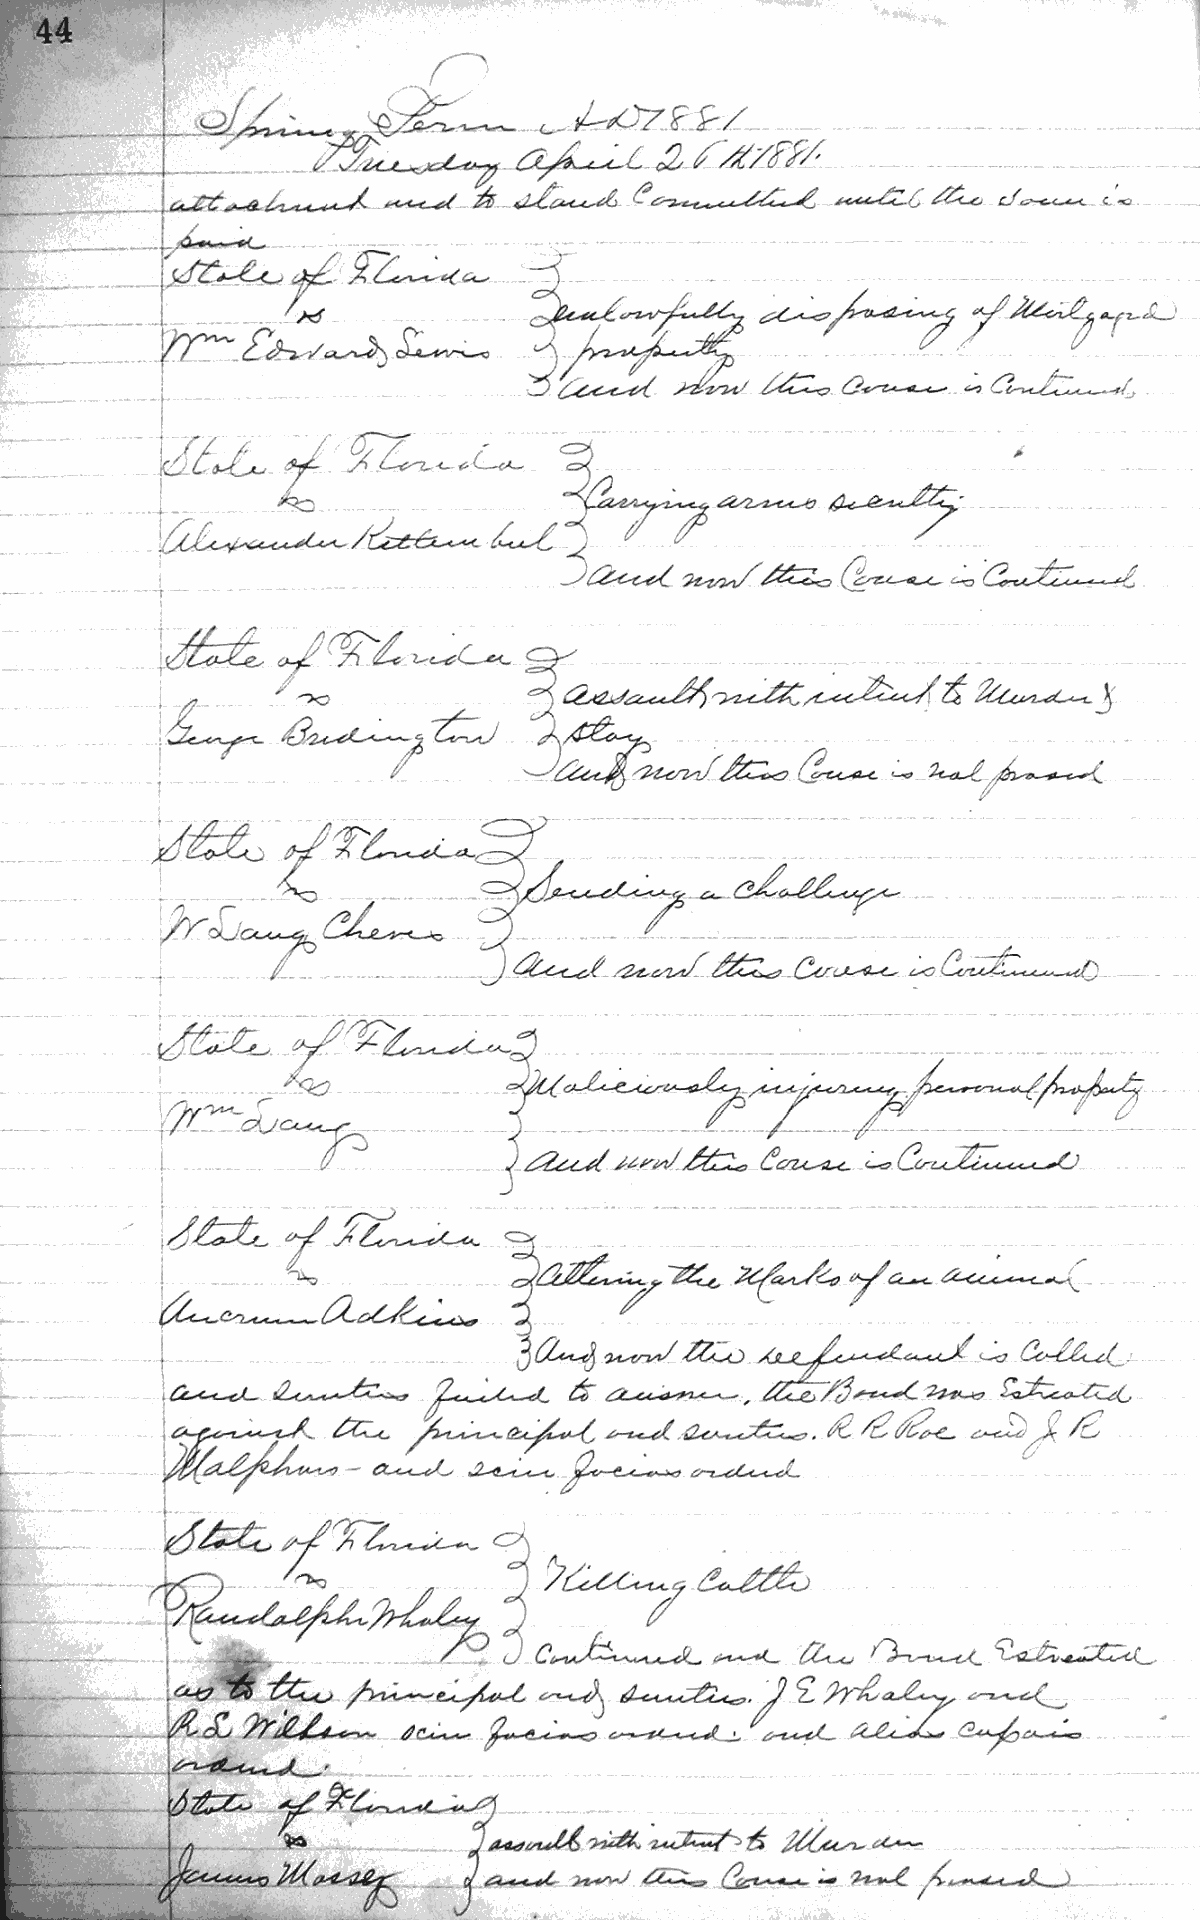 44
Spring Term A D 1881
Tuesday April 26th 1881.
attachment and to stand Committed until the Same is
paid
State of Florida
vs
unlawfully disposing of Mortgaged
Wm Edward Lewis
property
and now this Cause is Continued
State of Florida
vs
Carrying arms secretly
Alexander
and now this Cause is Continued
State of Florida
vs
assault with intent to Murder &
George Budington
slay
and now this Cause is nol prosed
State of Florida
vs
Sending a Challenge
W Lang Cheves
and now this Cause is Continued
State of Florida
vs
Maliciously injuring personal property
Wm Lang
and now this Cause is Continued
State of Florida
vs
Altering the Marks of an animal
Ancrum Adkins
And now the defendant is Called
and Sureties failed to answer, the Bond was Estreated
against the principal and sureties. R R Roe and J R
Malphurs - and scire facias ordered
State of Florida
vs
Killing Cattle
Randolph Whaley
Continued and the Bond Estreated
as to the principal and sureties. J E Whaley and
R L scire facias ordered. and alias capias
ordered.
State of Florida
vs
assault with intent to Murder
James Massey
and now this Cause is nol prosed